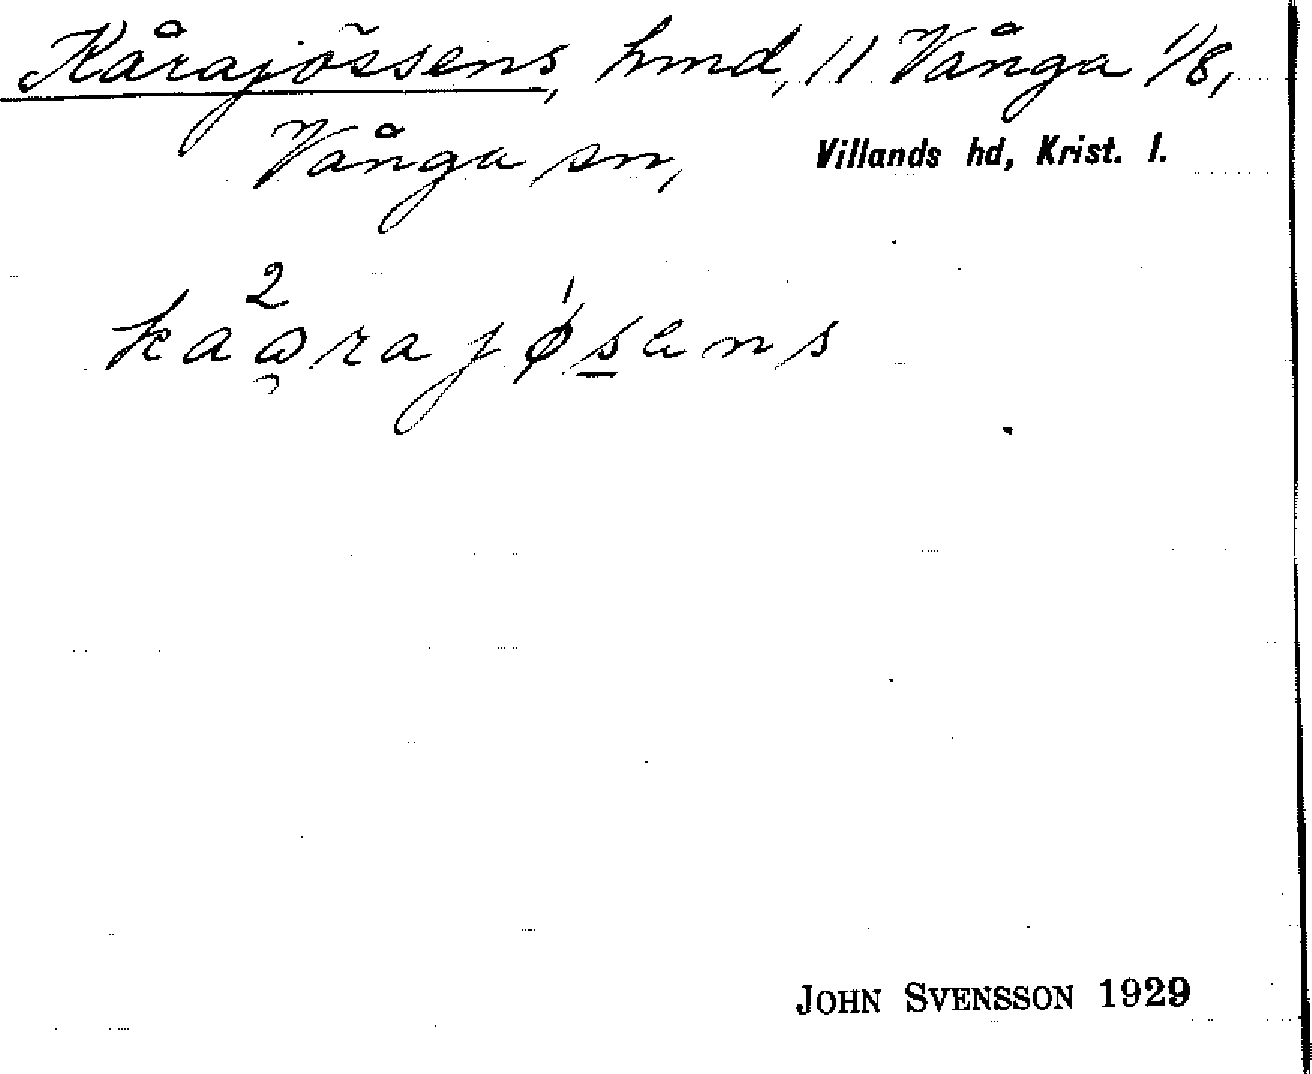 Kårajössens, hmd, 11 Vånga 1/8,
Vånga sn, Villands hd, Krist. l.
2
kaαrajøsens
JOHN SVENSSON 1929